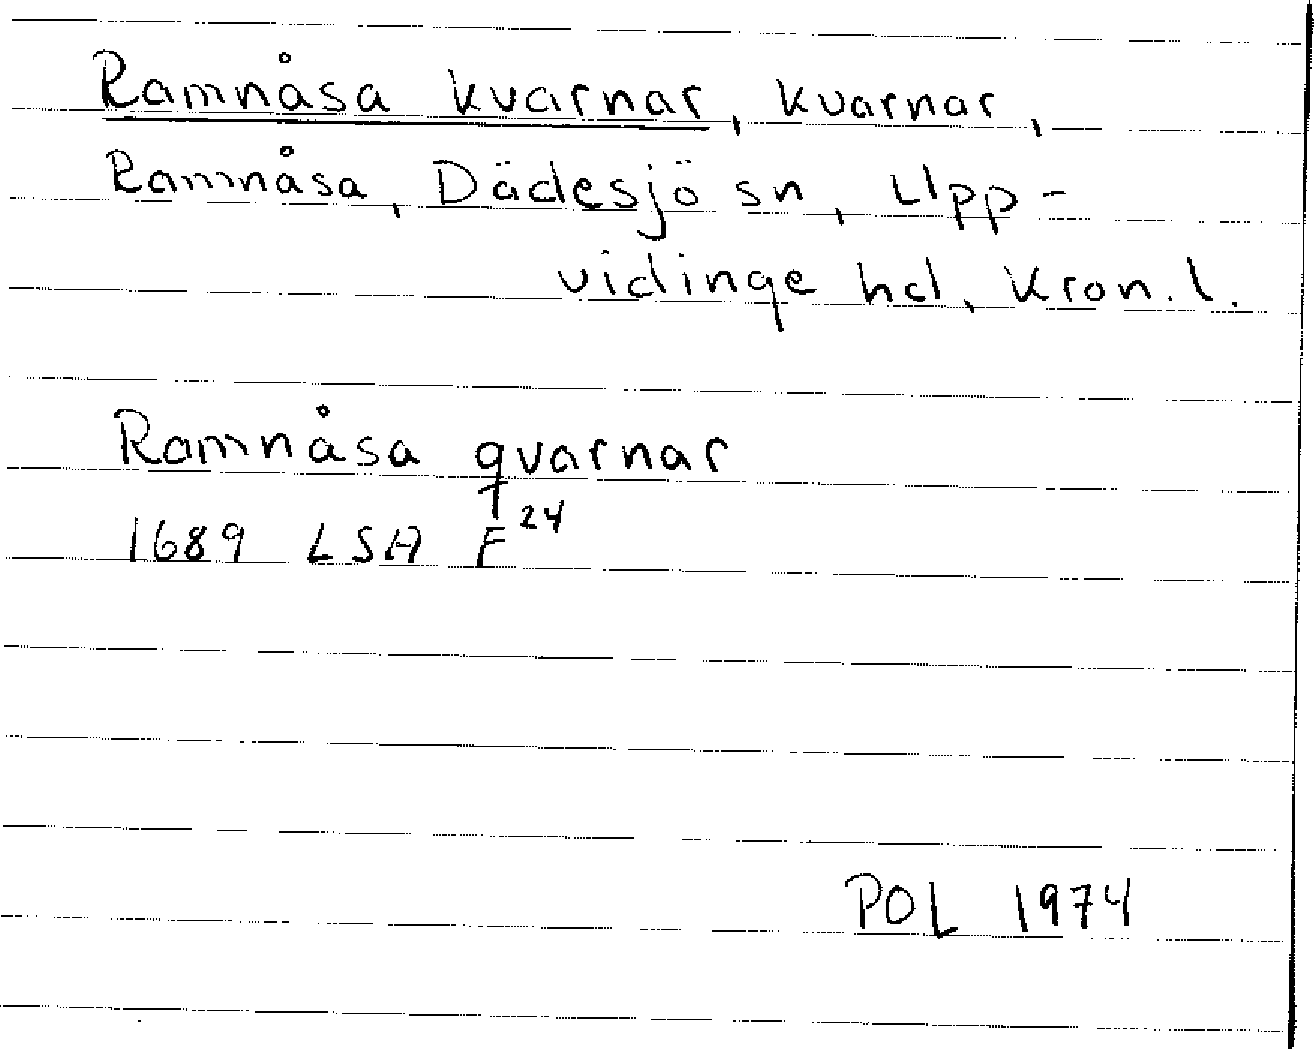 Ramnåsa kvarnar, kvarnar,
Ramnåsa, Dädesjö sn, Upp-
vidinge hd, Kron. l.
Ramnåsa qvarnar
1689 LSA F24
POL 1974